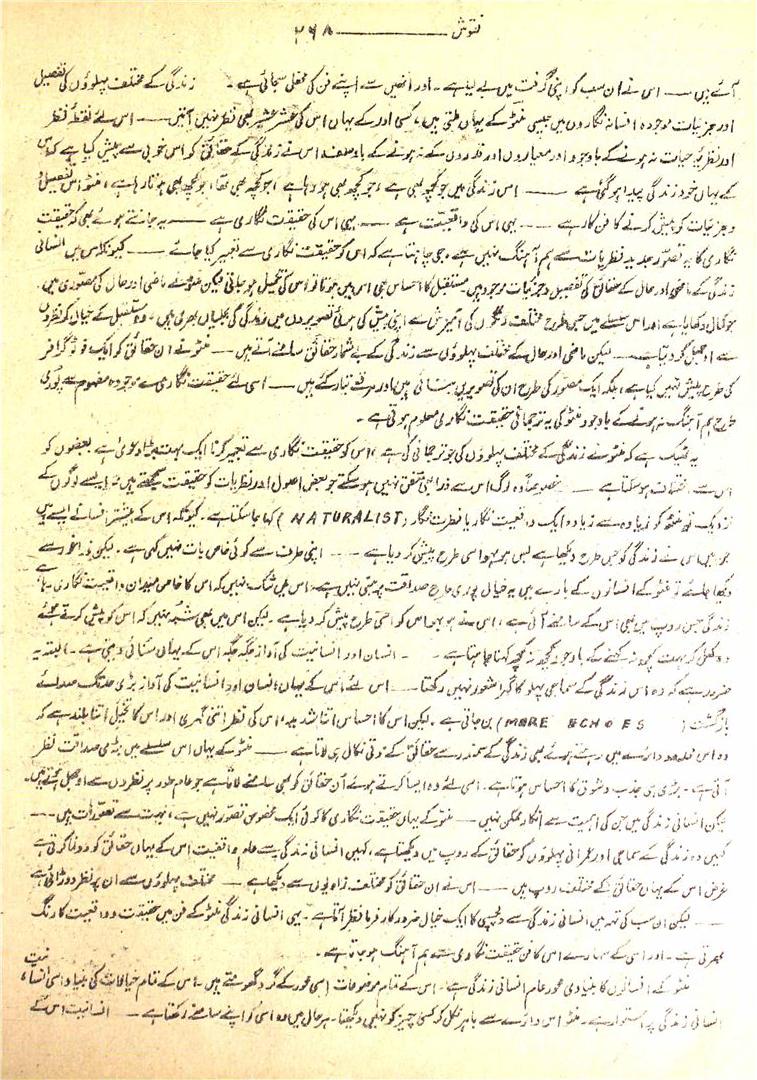 نقوش ———————— ۲۶۸
آئے ہیں —— اس نے ان سب کو اپنی گرفت میں لے لیا ہے ۔ اور انھیں سے اپنے فن کی محفل سجائی ہے ۔ زندگی کے مختلف پہلوؤں کی تفصیل
اور جزئیات موجودہ افسانہ نگاروں میں جیسی منٹو کے یہاں ملتی ہیں، کسی اور کے یہاں اس کی عشر عشیر بھی نظر نہیں آتیں —— اس لئے نقطۂ نظر
اور نظریۂ حیات نہ ہونے کے باوجود اور معیاروں اور قدروں کے نہ ہونے کے باوصف اس نے زندگی کے حقائق کو اس خوبی سے پیش کیا ہے کہ اس
کے یہاں خود زندگی پیدا ہو گئی ہے —— اس زندگی میں جو کچھ بھی ہے، جو کچھ بھی ہو رہا ہے، جو کچھ بھی تھا، جو کچھ بھی ہوتا رہا ہے، منٹو اس تفصیل
و جزئیات کو پیش کرنے کا فن کار ہے —— یہی اس کی واقعیت ہے —— یہی اس کی حقیقت نگاری ہے —— یہ جانتے ہوئے بھی کہ حقیقت
نگاری کا یہ تصور جدید نظریات سے ہم آہنگ نہیں ہے، جی چاہتا ہے کہ اس کو حقیقت نگاری سے تعبیر کیا جائے —— کیونکہ اس میں انسانی
زندگی کے ماضی اور حال کے حقائق کی تفصیل و جزئیات موجود ہیں مستقبل کا احساس بھی اس میں ہوتا تو اس کی تکمیل ہو جاتی لیکن منٹو نے ماضی اور حال کی مصوری میں
جو کمال دکھایا ہے اور اس سلسلے میں جس طرح مختلف رنگوں کی آمیزش سے اپنی بنائی ہوئی تصویروں میں زندگی کی بجلیاں بھری ہیں ۔ وہ مستقبل کے خیال کو نظروں
سے اوجھل کر دیتا ہے —— لیکن ماضی اور حال کے مختلف پہلوؤں سے زندگی کے بے شمار حقائق سامنے آتے ہیں —— منٹو نے ان حقائق کو ایک فوٹوگرافر
کی طرح پیش نہیں کیا ہے، بلکہ ایک مصور کی طرح ان کی تصویریں بنائی ہیں اور مرقعے تیار کئے ہیں —— اسی لئے حقیقت نگاری کے موجودہ مفہوم سے پوری
طرح ہم آہنگ نہ ہونے کے باوجود منٹو کی یہ ترجمانی حقیقت نگاری معلوم ہوتی ہے ۔
یہ ٹھیک ہے کہ منٹو نے زندگی کے مختلف پہلوؤں کی جو ترجمانی کی ہے، اس کو حقیقت نگاری سے تعبیر کرنا ایک بہت بڑا دعویٰ ہے بعضوں کو
اس سے اختلاف ہو سکتا ہے —— خصوصاً وہ لوگ اس سے ذرا بھی متفق نہیں ہو سکتے جو بعض اصول اور نظریات کو حقیقت سمجھتے ہیں ۔ ایسے لوگوں کے
نزدیک تو منٹو کو زیادہ سے زیادہ ایک واقعیت نگار یا فطرت نگار (NATURALIST) کہا جا سکتا ہے ۔ کیونکہ اس کے بیشتر افسانے ایسے ہیں
جن میں اس نے زندگی کو جس طرح دیکھا ہے بس ہو بہو اسی طرح پیش کر دیا ہے —— اپنی طرف سے کوئی خاص بات نہیں کہی ہے ۔ لیکن ذرا غور سے
دیکھا جائے تو منٹو کے افسانوں کے بارے میں یہ خیال پوری طرح صداقت پر مبنی نہیں ہے ۔ اس میں شک نہیں کہ اس کا خاص میدان واقعیت نگاری ہے،
زندگی جس روپ میں بھی اس کے سامنے آئی ہے، اس نے ہو بہو اس کو اسی طرح پیش کر دیا ہے ۔ لیکن اس میں بھی شبہ نہیں کہ اس کو پیش کرتے ہوئے
وہ کھل کر بہت کچھ نہ کہنے کے باوجود کچھ نہ کچھ کہنا چاہتا ہے —— انسان اور انسانیت کی آواز جگہ جگہ اس کے یہاں سنائی دیتی ہے ۔ البتہ یہ
ضرور ہے کہ وہ اس زندگی کے سماجی پہلو کا گہرا شعور نہیں رکھتا —— اس لئے اس کے یہاں انسان اور انسانیت کی آواز بڑی حد تک صدائے
بازگشت (MERE ECHOES) بن جاتی ہے ۔ لیکن اس کا احساس اتنا شدید، اس کی نظر اتنی گہری اور اس کا تخیل اتنا بلند ہے کہ
وہ اس محدود دائرے میں رہتے ہوئے بھی زندگی کے سمندر سے حقائق کے موتی نکال ہی لاتا ہے —— منٹو کے یہاں اس سلسلے میں بڑی صداقت نظر
آتی ہے ۔ بڑی ہی جذب و شوق کا احساس ہوتا ہے ۔ اسی لئے وہ ایسا کرتے ہوئے ان حقائق کو بھی سامنے لاتا ہے جو عام طور پر نظروں سے اوجھل رہتے ہیں
لیکن انسانی زندگی میں جن کی اہمیت سے انکار ممکن نہیں —— منٹو کے یہاں حقیقت نگاری کا کوئی ایک مخصوص تصور نہیں ہے، بہت سے تصورات ہیں ——
کہیں وہ زندگی کے سماجی اور عمرانی پہلوؤں کو حقائق کے روپ میں دیکھتا ہے، کہیں انسانی زندگی سے عام واقفیت اس کے یہاں حقائق کو رونما کرتی ہے
غرض اس کے یہاں حقائق کے مختلف روپ ہیں —— اس نے ان حقائق کو مختلف زاویوں سے دیکھا ہے —— مختلف پہلوؤں سے ان پر نظر دوڑائی ہے
—— لیکن ان سب کی تہہ میں انسانی زندگی سے دلچسپی کا ایک خیال ضرور کار فرما نظر آتا ہے ۔ یہی انسانی زندگی منٹو کے فن میں حقیقت و واقعیت کا رنگ
بھرتی ہے ۔ اور اسی کے سہارے اس کا فن حقیقت نگاری سے ہم آہنگ ہو جاتا ہے ۔
منٹو کے افسانوں کا بنیادی محور عام انسانی زندگی ہے ۔ اس کے تمام موضوعات اسی محور کے گرد گھومتے ہیں ۔ اس کے تمام خیالات کی بنیاد اسی انسانیت
انسانی زندگی پر استوار ہے ۔ منٹو اس دائرے سے باہر نکل کر کسی چیز کو نہیں دیکھتا ۔ ہر حال میں وہ اسی کو اپنے سامنے رکھتا ہے ۔ انسانیت اس کے